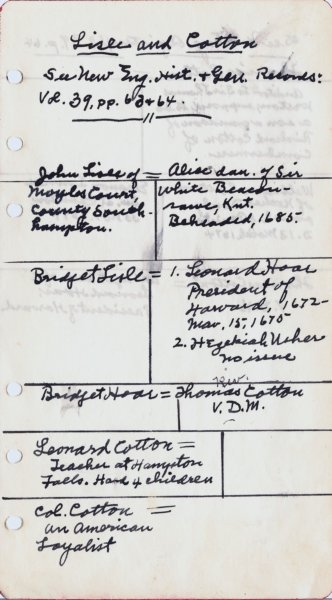 Lisle and Cotton
See New Eng. Hist. & Gen. Records:
Vol. 39, pp. 63 & 64
John Lisle of = Alice dau. of Sir
Moyles Court, White Beacon-
County South- saw, Knt.
hampton. Beheaded, 1685
Bridget Lisle = 1. Leonard Hoar
President of
Harvard, 1672-
Mar. 15, 1675
2. Hezekiah Usher
no issue
Rev.
Bridget Hoar = Thomas Cotton
V. D. M.
Leonard Cotton =
Teacher at Hampton
Falls. Had 4 children
Col. Cotton =
an American
Loyalist